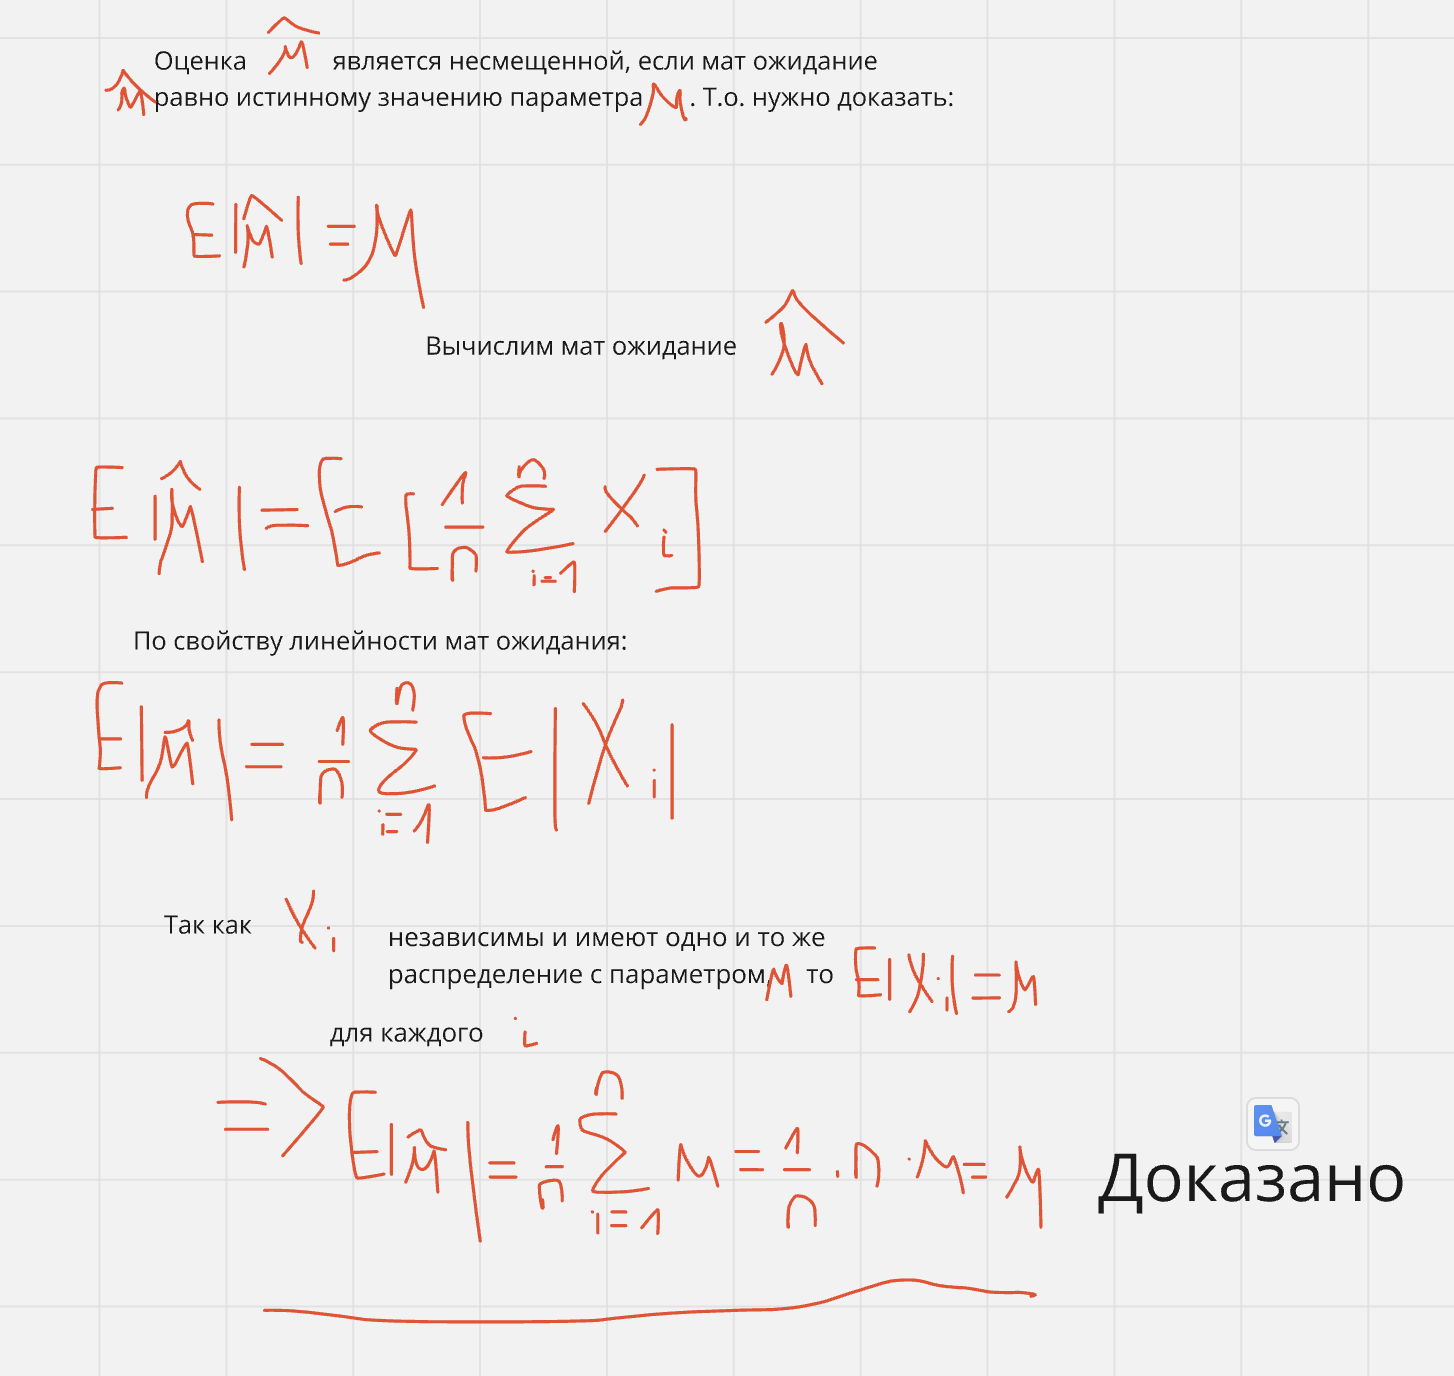 Оценка μ̂ является несмещенной, если мат ожидание
μ̂ равно истинному значению параметра μ. Т.о. нужно доказать:
E|μ̂| = μ
Вычислим мат ожидание μ̂
E|μ̂| = E[1/n ∑_{i=1}^{n} X_i]
По свойству линейности мат ожидания:
E|μ̂| = 1/n ∑_{i=1}^{n} E|X_i|
Так как X_i независимы и имеют одно и то же
распределение с параметром μ, то E|X_i| = μ
для каждого i
=> E|μ̂| = 1/n ∑_{i=1}^{n} μ = 1/n · n · μ = μ
Доказано